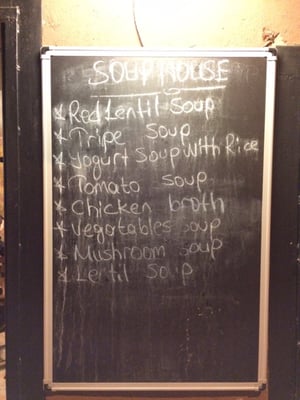 SOUP HOUSE
* Red Lentil Soup
* Tripe Soup
* Yogurt Soup With Rice
* Tomato Soup
* Chicken broth
* Vegatables soup
* Mushroom soup
* Lentil Soup